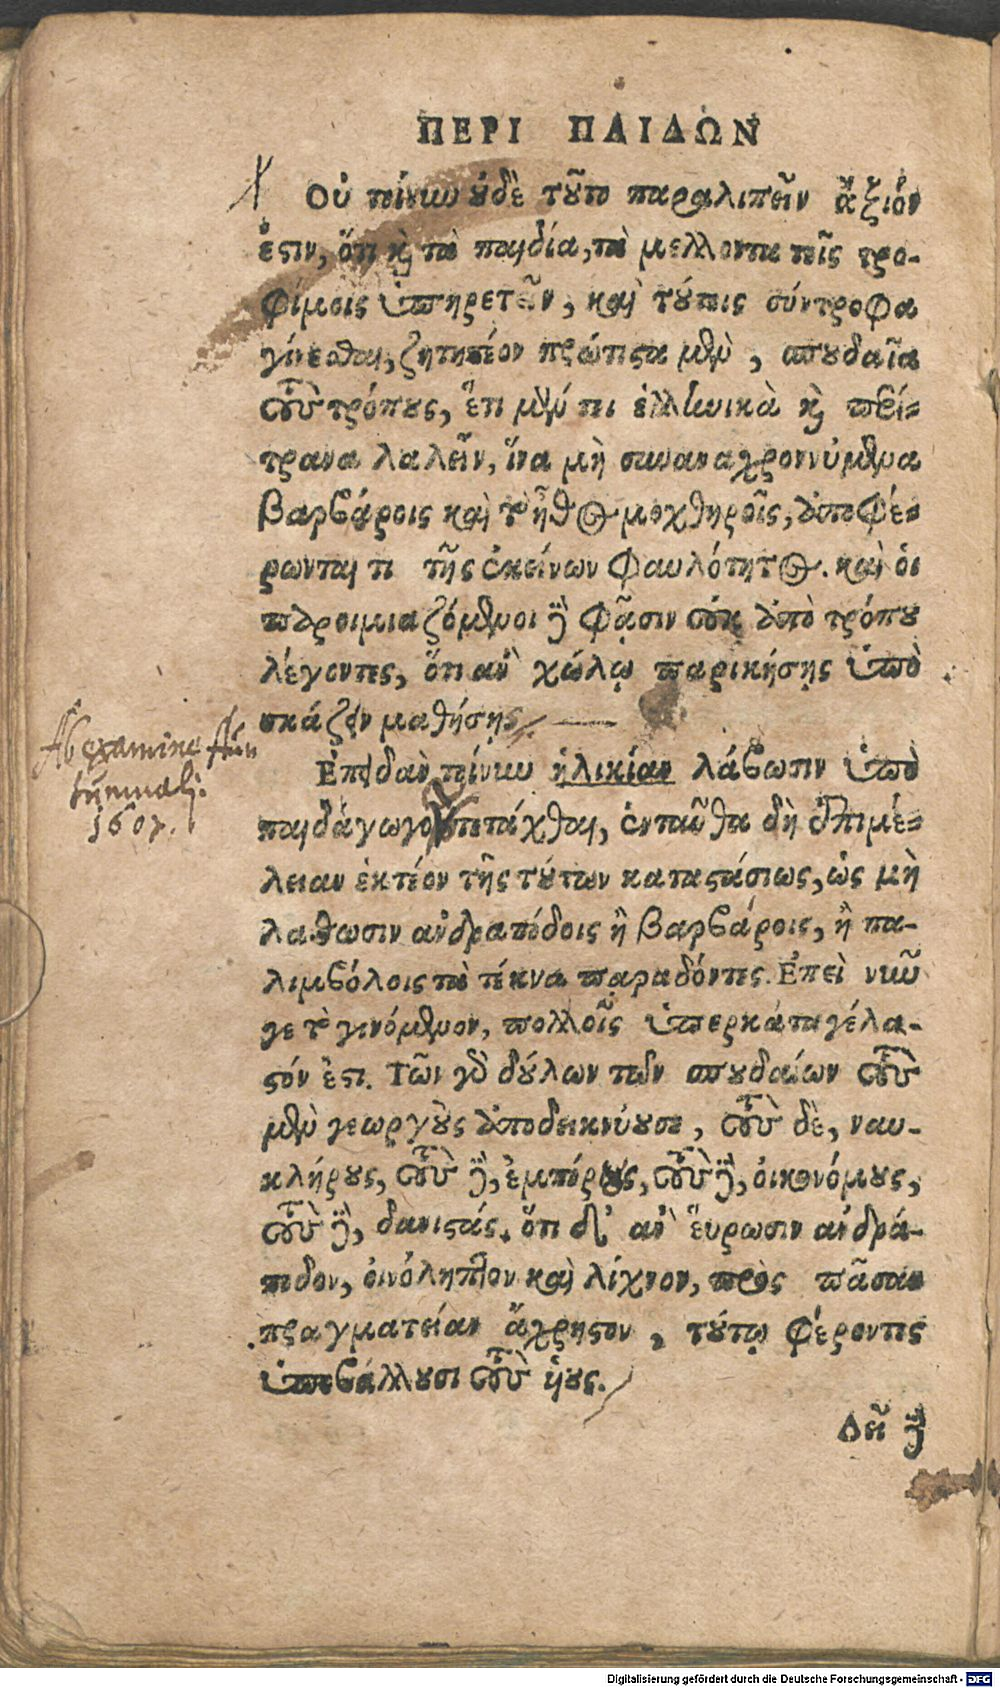 ΠΕΡΙ ΠΑΙΔΩΝ
Οὐ τοίνυν οὐδὲ τοῦτο παραλιπεῖν ἄξιόν
ἐστιν, ὅτι καὶ τὰ παιδία, τὰ μέλλοντα τοῖς τρο-
φίμοις ὑπηρετεῖν, καὶ τούτοις σύντροφα
γίνεσθαι, ζητητέον πρώτιστα μὲν, σπουδαῖα
τοὺς τρόπους, ἔτι μέν τοι ἑλληνικὰ καὶ περί-
τρανα λαλεῖν, ἵνα μὴ συναναχρωννύμενα
βαρβάροις καὶ τὸ ἦθος μοχθηροῖς, ἀποφέ-
ρωνταί τι τῆς ἐκείνων φαυλότητος. καὶ οἱ
παροιμιαζόμενοι δέ φασιν οὐκ ἀπὸ τρόπου
λέγοντες, ὅτι ἂν χωλῷ παροικήσῃς ὑπο
σκάζειν μαθήσῃ
Ἐπειδὰν τοίνυν ἡλικίαν λάβωσιν ὑπὸ
παιδαγωγοῖς τετάχθαι, ἐνταῦθα δὴ ἐπιμέ-
λειαν ἑκτέον τῆς τούτων καταστάσεως, ὡς μὴ
λάθωσιν ἀνδραπόδοις ἢ βαρβάροις, ἢ πα-
λιμβόλοις τὰ τέκνα παραδόντες. Ἐπεὶ νῦν
γε τὸ γινόμενον, πολλοῖς ὑπερκαταγέλα-
στόν ἐστι. Τῶν γὰρ δούλων τῶν σπουδαίων τοὺς
μὲν γεωργοὺς ἀποδεικνύουσι, τοὺς δὲ, ναυ-
κλήρους, τοὺς δὲ, ἐμπόρους, τοὺς δὲ, οἰκονόμους,
τοὺς δὲ, δανιστάς. ὅτι δ' ἂν εὕρωσιν ἀνδρά-
ποδον, οἰνόληπτον καὶ λίχνον, πρὸς πᾶσαν
πραγματείαν ἄχρηστον, τούτῳ φέροντες
ὑποβάλλουσι τοὺς υἱούς.
Δεῖ δὲ
Ab examine Au
tumnali.
1607.
Digitalisierung gefördert durch die Deutsche Forschungsgemeinschaft - DFG